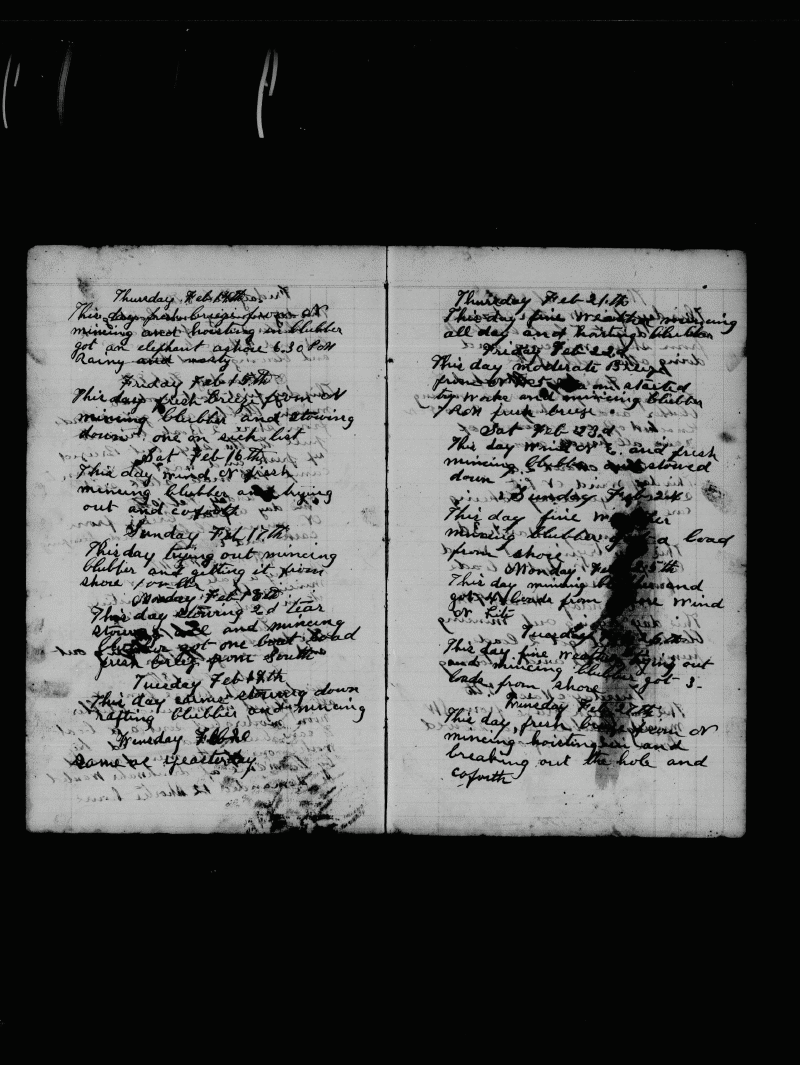 Thursday Feb 14th
This day fresh breeze from N
mincing and hoisting in blubber
got an elephant ashore 6.30 PM
Rainy and misty
Friday Feb 15th
This day fresh breeze from N
mincing blubber and stowing
down one on sick list
Sat Feb 16th
This day wind N fresh
mincing blubber and trying
out and coforth
Sunday Feb 17th
This day trying out mincing
blubber and getting it from
shore
Monday Feb 18th
This day stowing 2d tear
stowing and mincing
blubber got one boat load
fresh breeg from South
Tuesday Feb 19th
This day came stowing down
rafting blubber and mincing
Wensday Feb
same as yeasterday
Thursday Feb 21th
This day fine Weather mincing
all day and hoisting blubber
Friday Feb 22d
This day moderate Breeze
from N started
try works and mincing blubber
PM fresh breeze
Sat Feb 23d
This day wind N E. and fresh
mincing blubber and stowed
down
Sunday Feb 24
This day fine weather
mincing blubber got a load
from shore
Monday Feb 25th
This day mincing blubber and
got loads from Wind
N Lit
Tuesday 26th
This day fine weather trying out
and mincing blubber got 3
loads from shore
Wensday Feb 27th
This day fresh breeze from N
mincing hoisting in and
breaking out the hole and
coforth